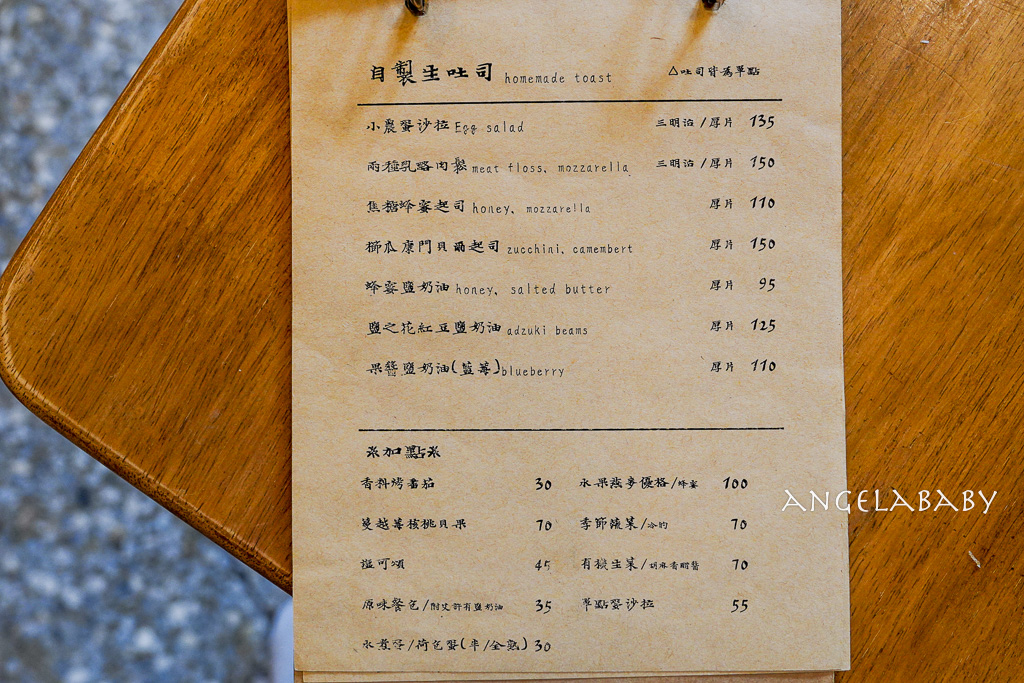 自製生吐司 homemade toast △吐司皆為單點
小農蛋沙拉 Egg salad 三明治/厚片 135
兩種乳酪肉鬆 meat floss, mozzarella 三明治/厚片 150
焦糖蜂蜜起司 honey, mozzarella 厚片 110
櫛瓜康門貝爾起司 zucchini, camembert 厚片 150
蜂蜜鹽奶油 honey, salted butter 厚片 95
鹽之花紅豆鹽奶油 adzuki beams 厚片 125
果醬鹽奶油(藍莓) blueberry 厚片 110
*加點*
香料烤番茄 30 水果燕麥優格/蜂蜜 100
蔓越莓核桃貝果 70 季節蔬菜/冷的 70
可頌 45 有機生菜/胡麻香醋醬 70
原味餐包/附艾許有鹽奶油 35 單點蛋沙拉 55
水煮蛋/荷包蛋(半/全熟) 30
ANGELABABY